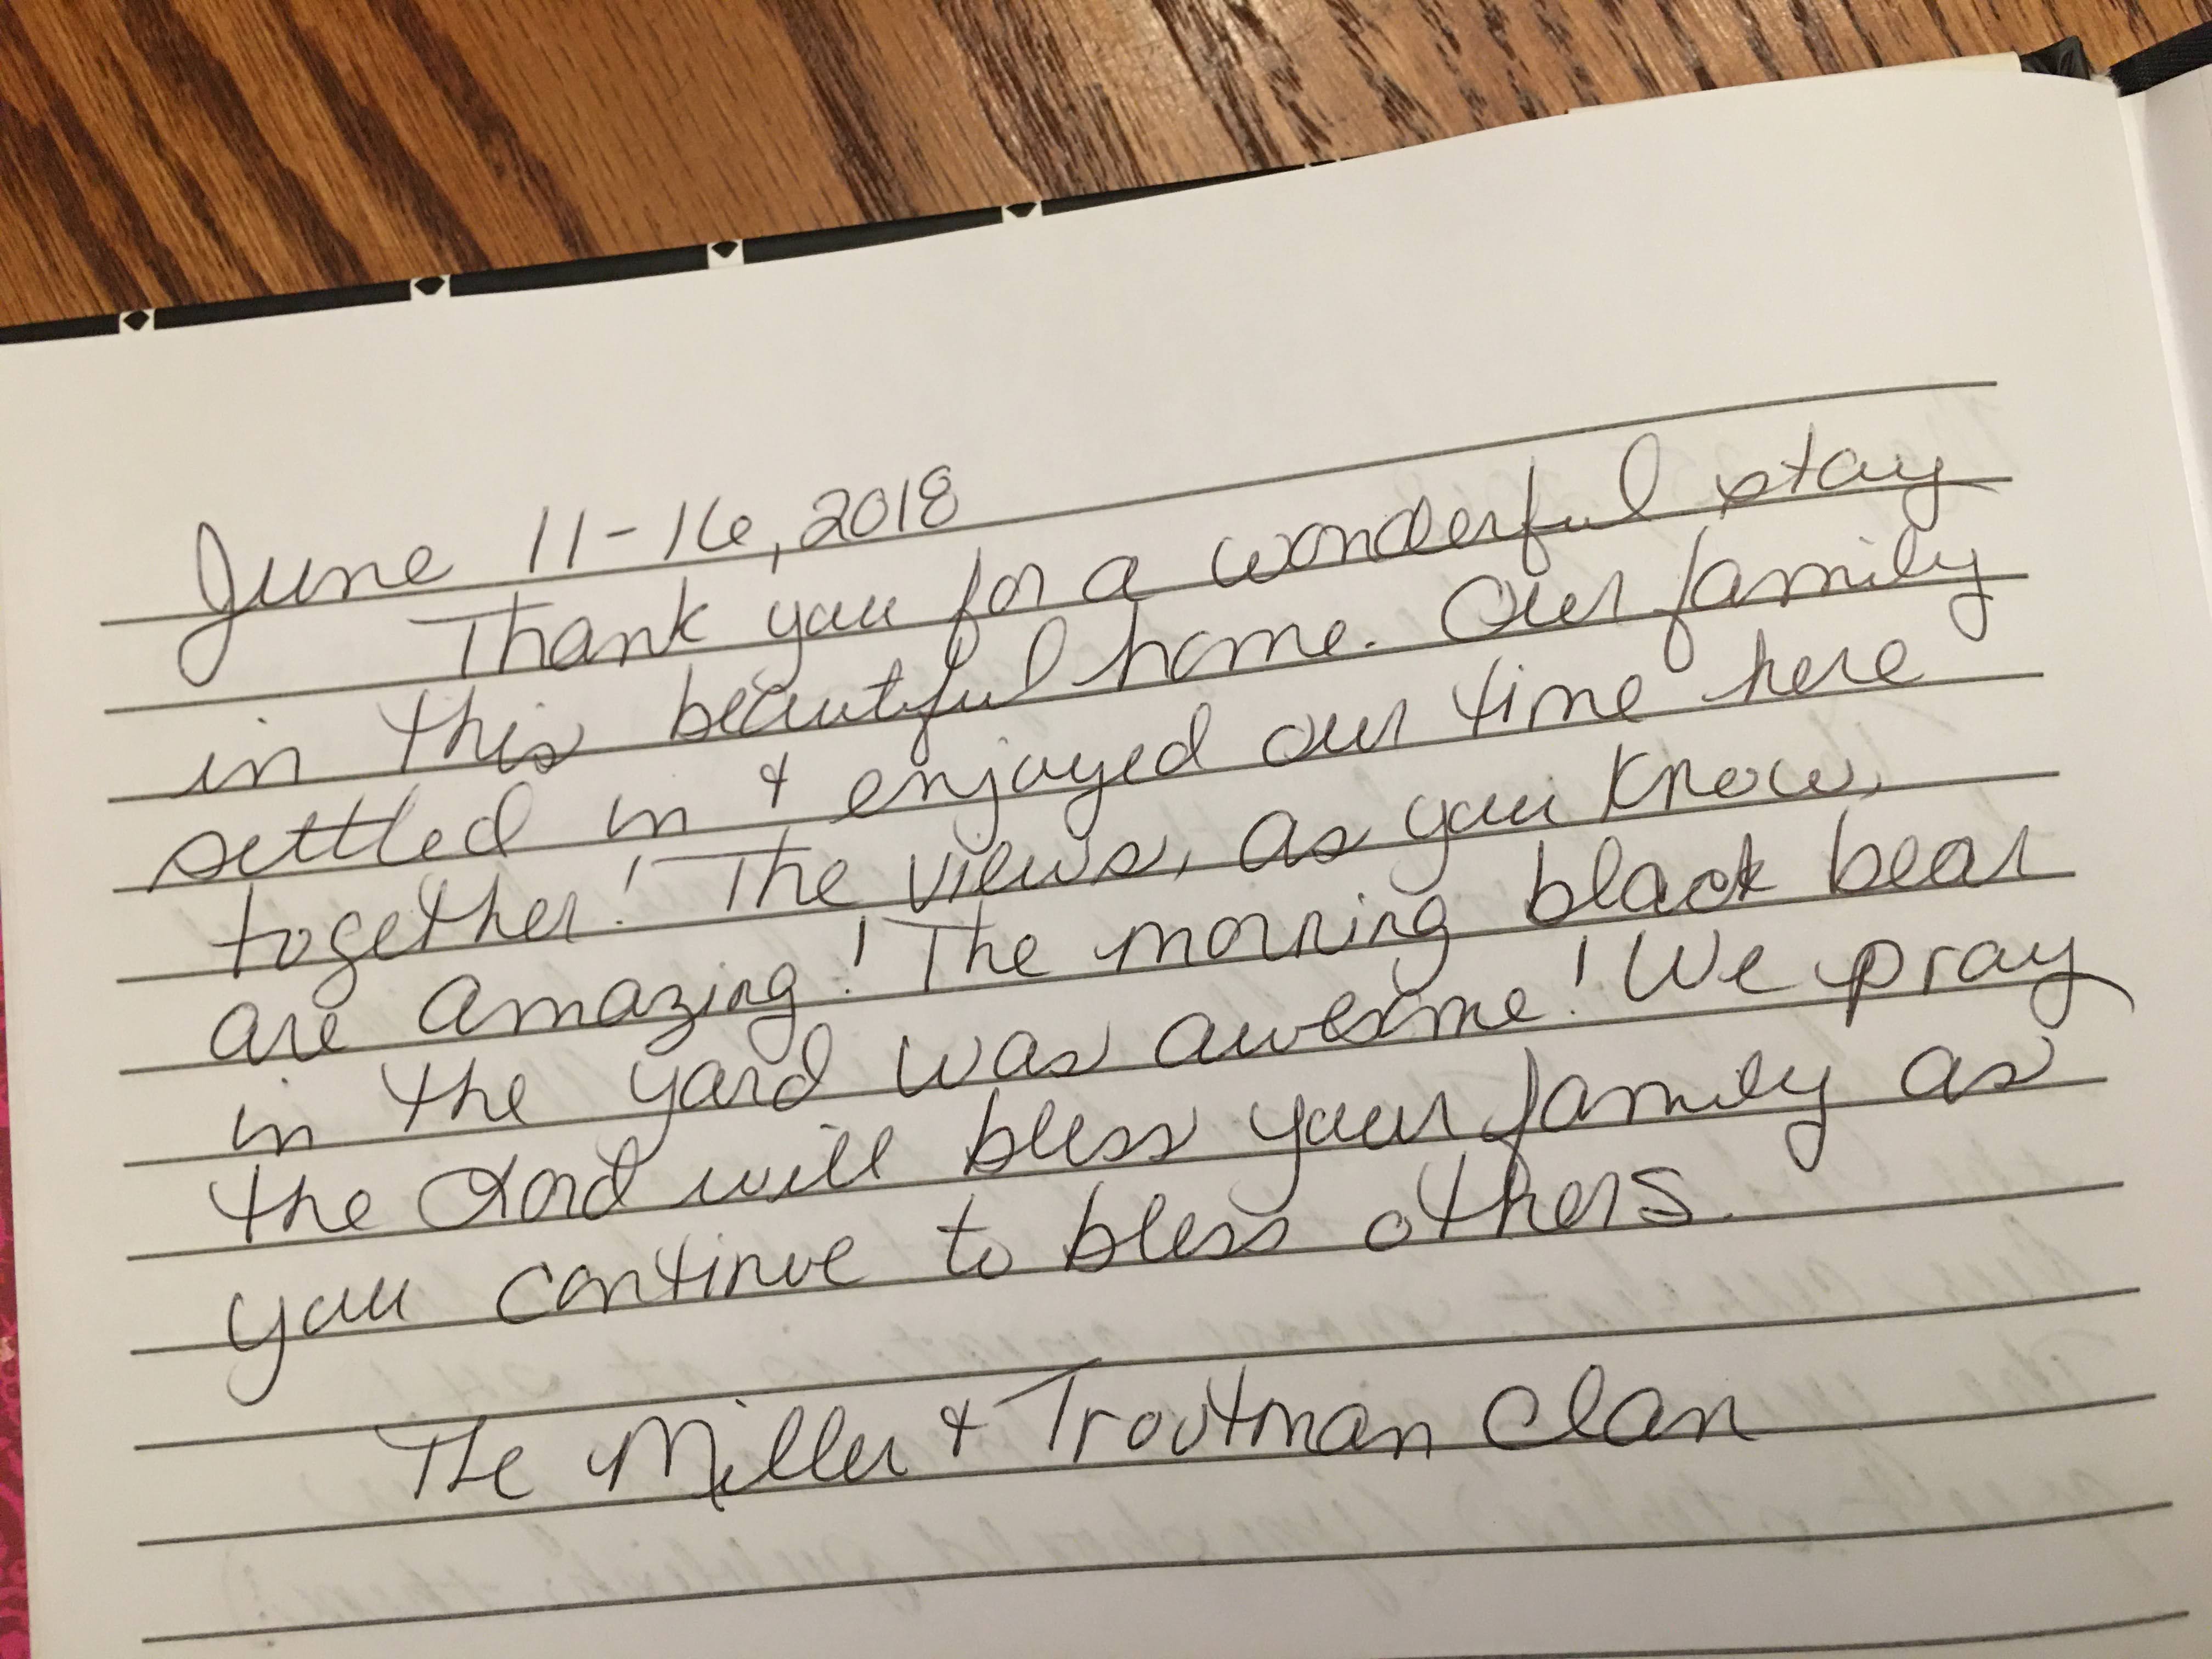 June 11-16, 2018
Thank you for a wonderful stay
in this beautiful home. Our family
settled in & enjoyed our time here
together! The views, as you know,
are amazing! The morning black bear
in the yard was awesome! We pray
the Lord will bless your family as
you continue to bless others.
The Miller & Troutman Clan